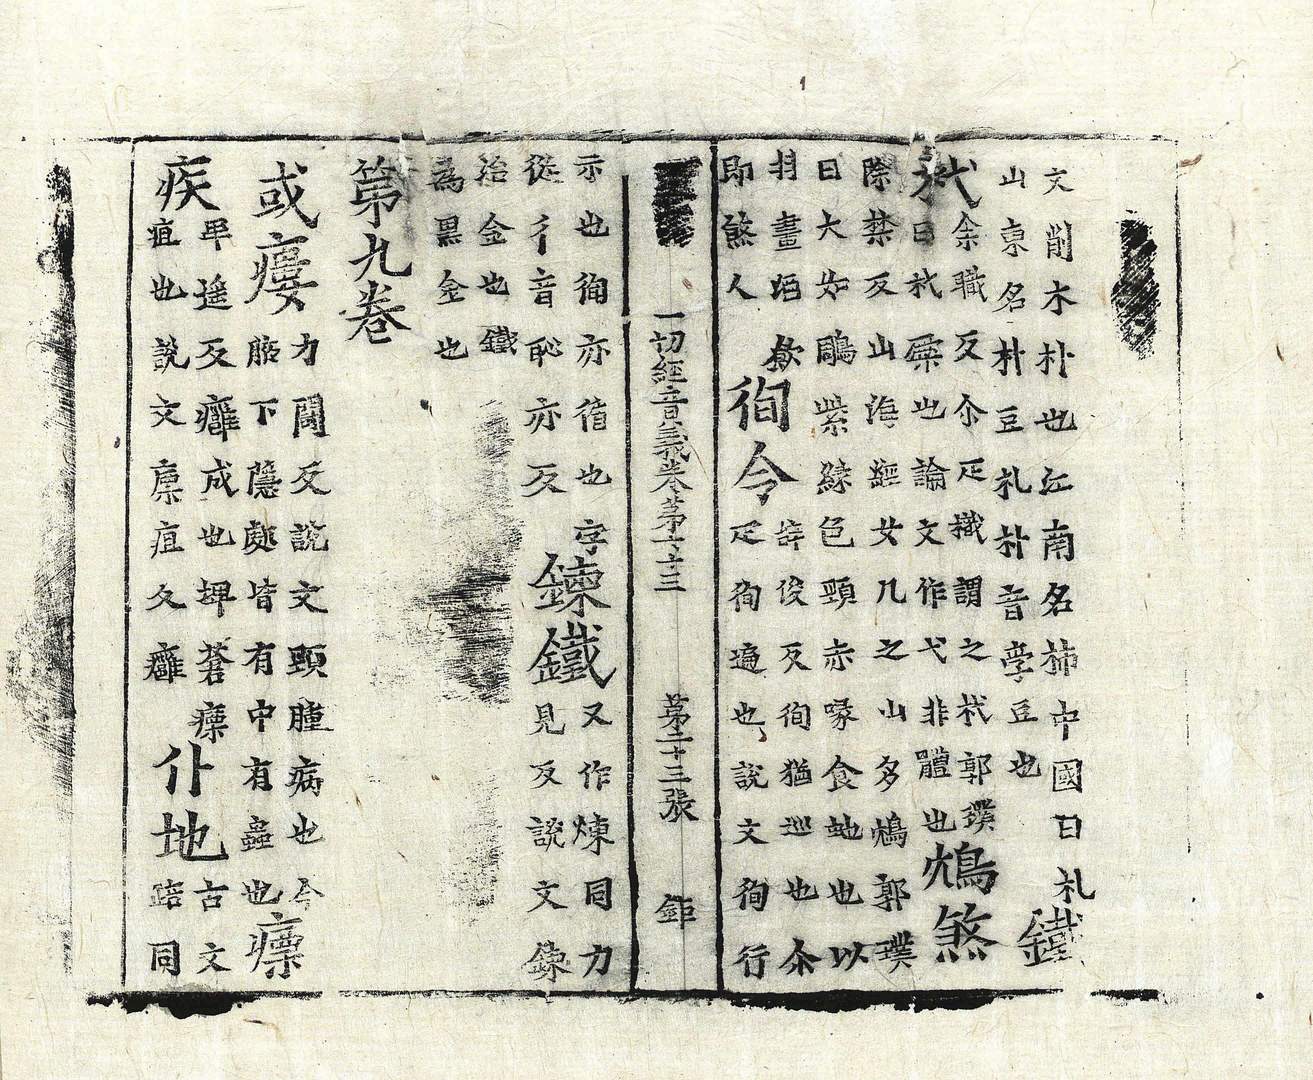 文削木朴也江南名柹中國曰札
山東名朴豆札朴音孛豆也
鐵
杙
余職反尒疋樴謂之杙郭璞
曰杙橜也論文作弋非體也
鴆煞
除禁反山海經女几之山多鴆郭璞
曰大如鵰紫緑色頸赤喙食虵也以
羽畫酒飲
即煞人
徇令
辝俊反徇猶巡也尒
疋徇遍也說文徇行
一切經音義卷苐二十三 苐二十三張 鉅
示也徇亦循也字
從彳音恥亦反
鍊鐵
又作煉同力
見反說文鍊
冶金也鐵
為黒金也
第九卷
或瘻
力鬪反說文頸腫病也今
腋下隱處皆有中有蟲也
瘭
疾
卑遥反癰成也埤蒼瘭
疽也說文瘭疽久癰
仆地
古文
踣同